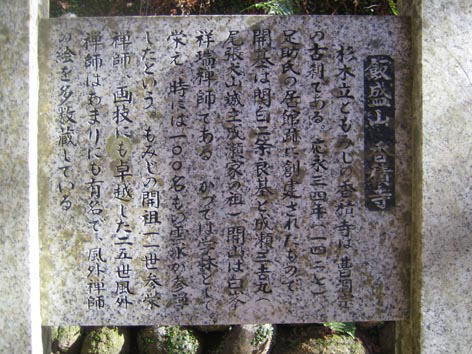 飯盛山 香積寺
杉木立ともみじの香積寺は、曹洞宗
の古刹である。応永三四年(一四二七)
足助氏の居館跡に創建されたもので
開基は関白二条良基と成瀬三吉丸(
尾張犬山城主成瀬家の祖)開山は白峯
祥瑞禅師である かつては学林として
栄え 時には一〇〇名もの雲水が参禅
したという。もみじの開祖一一世参栄
禅師、画技にも卓越した二五世風外
禅師はあまりにも有名で、風外禅師
の絵を多数蔵している